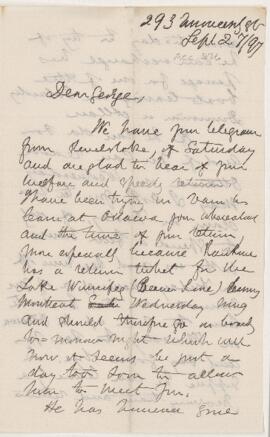 Sept 27/97
Dear George,
We have your telegram
from Revelstoke, of Saturday
and are glad to hear of your
welfare and speedy return
I have been trying in vain to
learn at Ottawa your whereabouts
and the time of your return
more especially because
has a return ticket for the
Lake Winnipeg (Beaver Line) leaving
Montreal Wednesday morng
and should therefore go on board
to-morrow night — which will
now it seems be just a
day too soon to allow
him to meet you.
He has however some